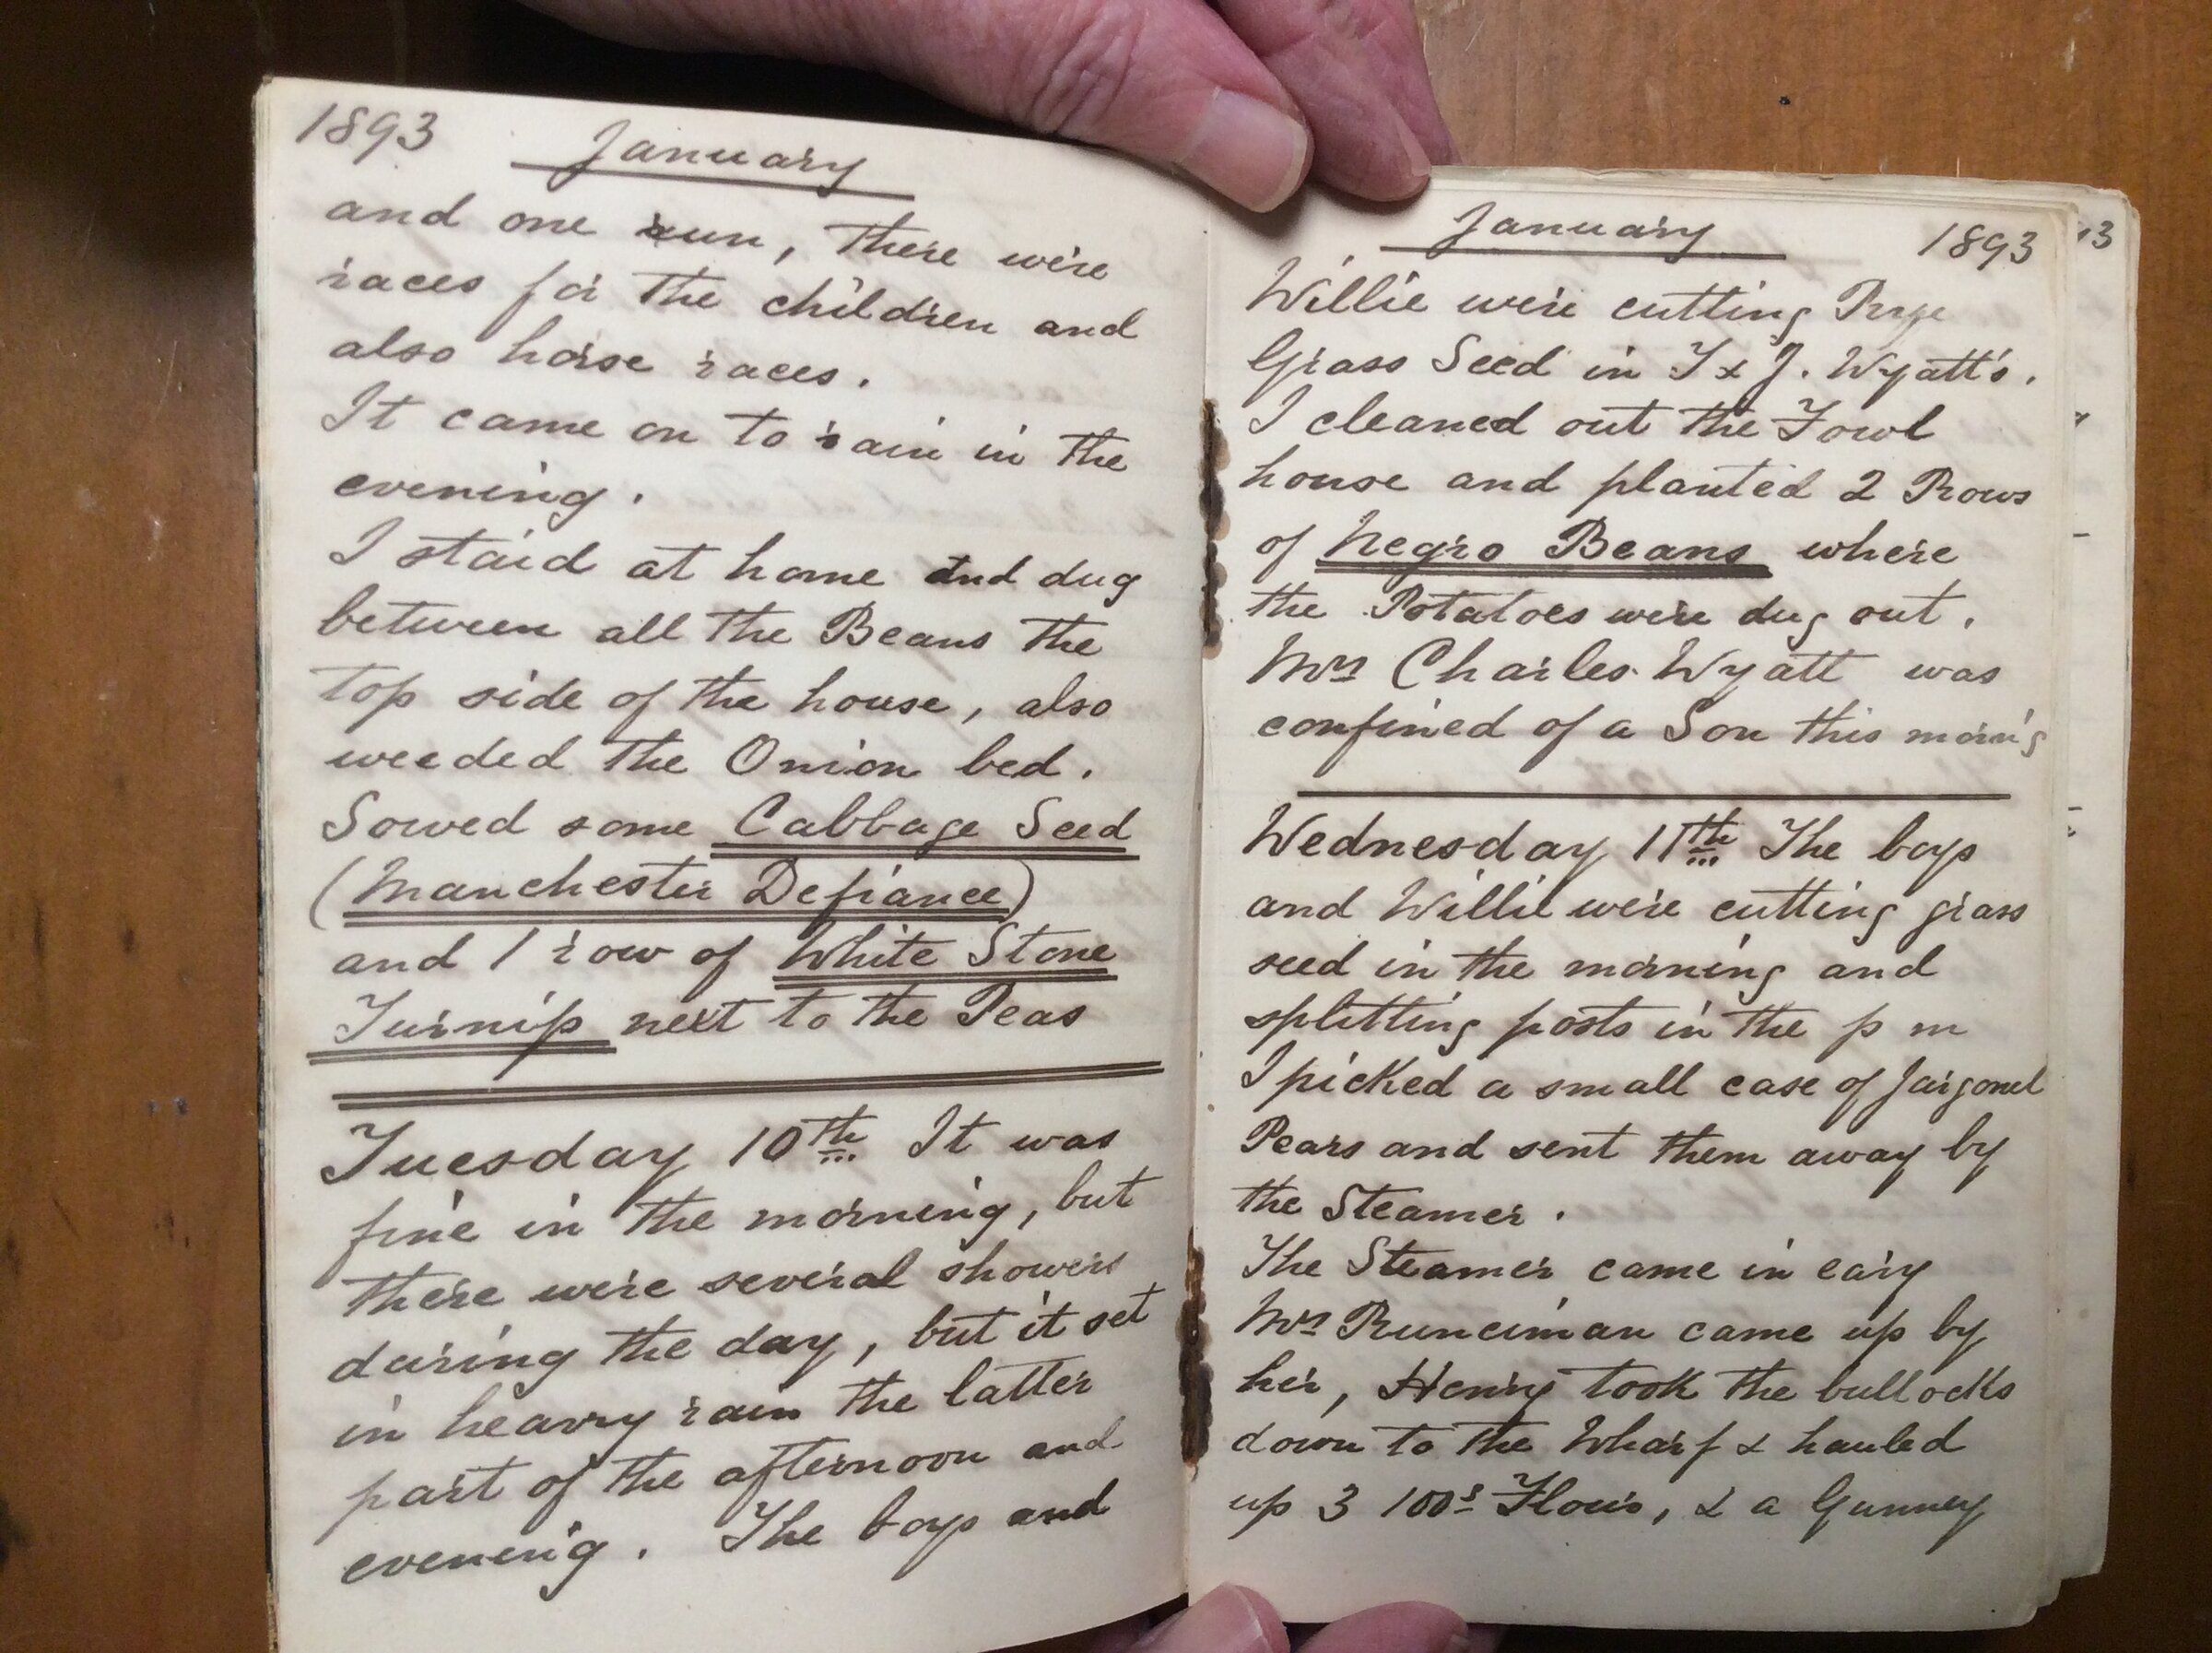 1893 January
and one run, there were
races for the children and
also horse races.
It came on to rain in the
evening.
I staid at home and dug
between all the Beans the
top side of the house, also
weeded the Onion bed.
Sowed some Cabbage Seed
(Manchester Defiance)
and 1 row of White Stone
Turnip next to the Peas
Tuesday 10th It was
fine in the morning, but
there were several showers
during the day, but it set
in heavy rain the latter
part of the afternoon and
evening. The boys and
January 1893
Willie were cutting Rye
Grass Seed in T & J. Wyatt's.
I cleaned out the Fowl
house and planted 2 Rows
of Negro Beans where
the Potatoes were dug out.
Mrs Charles Wyatt was
confined of a Son this morng
Wednesday 11th The boys
and Willie were cutting grass
seed in the morning and
splitting posts in the p m
I picked a small case of Jargonel
Pears and sent them away by
the Steamer.
The Steamer came in eary
Mrs Runciman came up by
her, Henry took the bullocks
down to the Wharf & hauled
up 3 100s Flour, & a Gunney